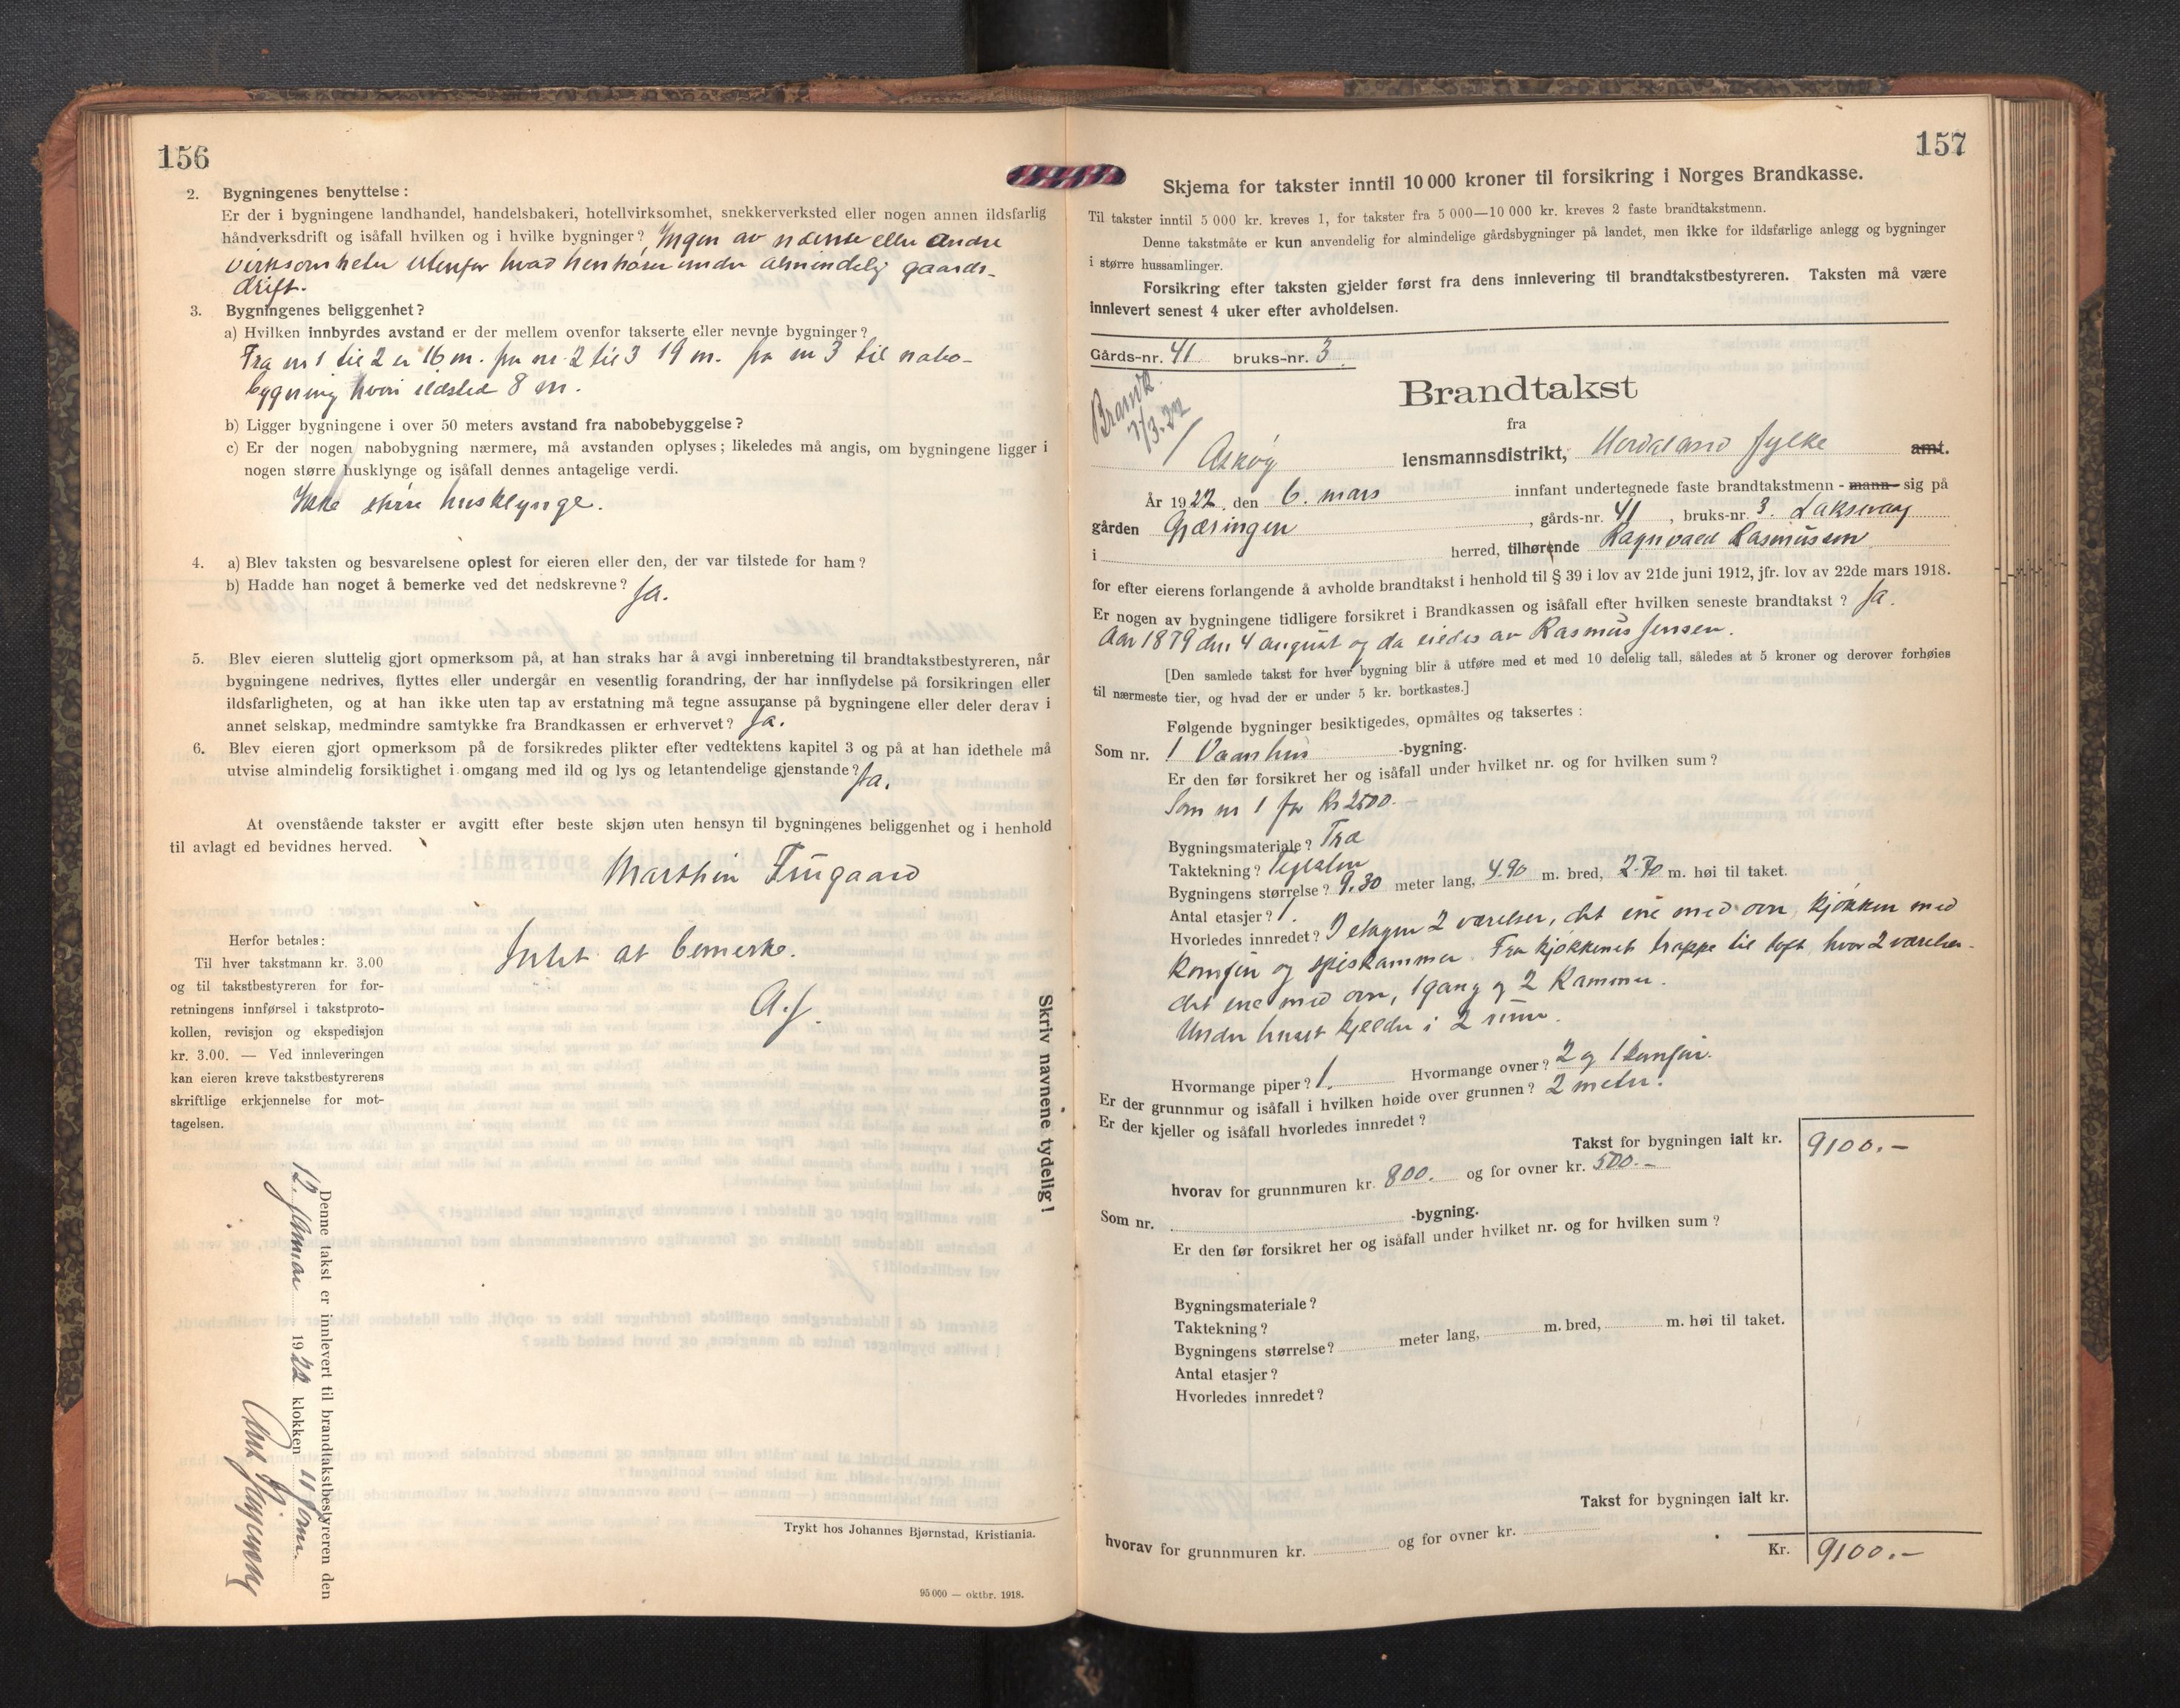 156
2. Bygningenes benyttelse:
Er der i bygningene landhandel, handelsbakeri, hotellvirksomhet, snekkerverksted eller nogen annen ildsfarlig
håndverksdrift og isåfall hvilken og i hvilke bygninger? Ingen av nævnte eller andre
virksomheter utenfor hvad henhører under almindelig gaards-
drift.
3. Bygningenes beliggenhet?
a) Hvilken innbyrdes avstand er der mellem ovenfor takserte eller nevnte bygninger?
Fra nr 1 til 2 er 16 m. fra nr. 2 til 3 19 m. fra nr 3 til nabo-
bygning hvori ildsted 8 m.
b) Ligger bygningene i over 50 meters avstand fra nabobebyggelse?
c) Er der nogen nabobygning nærmere, må avstanden oplyses; likeledes må angis, om bygningene ligger i
nogen større husklynge og isåfall dennes antagelige verdi.
Ikke større husklynge.
4. a) Blev taksten og besvarelsene oplest for eieren eller den, der var tilstede for ham?
b) Hadde han noget å bemerke ved det nedskrevne? Ja.
5. Blev eieren sluttelig gjort opmerksom på, at han straks har å avgi innberetning til brandtakstbestyreren, når
bygningene nedrives, flyttes eller undergår en vesentlig forandring, der har innflydelse på forsikringen eller
ildsfarligheten, og at han ikke uten tap av erstatning må tegne assuranse på bygningene eller deler derav i
annet selskap, medmindre samtykke fra Brandkassen er erhvervet? Ja.
6. Blev eieren gjort opmerksom på de forsikredes plikter efter vedtektens kapitel 3 og på at han idethele må
utvise almindelig forsiktighet i omgang med ild og lys og letantendelige gjenstande? Ja.
At ovenstående takster er avgitt efter beste skjøn uten hensyn til bygningenes beliggenhet og i henhold
til avlagt ed bevidnes herved.
Marthin Trügaard
Herfor betales:
Til hver takstmann kr. 3.00
og til takstbestyreren for for-
retningens innførsel i takstproto-
kollen, revisjon og ekspedisjon
kr. 3.00. — Ved innleveringen
kan eieren kreve takstbestyrerens
skriftlige erkjennelse for mot-
tagelsen.
Intet at bemerke.
A.J.
Skriv navnene tydelig!
Denne takst er innlevert til brandtakstbestyreren den
12. Januar 1922 klokken 11 fm.
Trykt hos Johannes Bjørnstad, Kristiania.
95 000 — oktbr. 1918.
157
Skjema for takster inntil 10 000 kroner til forsikring i Norges Brandkasse.
Til takster inntil 5 000 kr. kreves 1, for takster fra 5 000—10 000 kr. kreves 2 faste brandtakstmenn.
Denne takstmåte er kun anvendelig for almindelige gårdsbygninger på landet, men ikke for ildsfarlige anlegg og bygninger
i større hussamlinger.
Forsikring efter taksten gjelder først fra dens innlevering til brandtakstbestyreren. Taksten må være
innlevert senest 4 uker efter avholdelsen.
Gårds-nr. 41 bruks-nr. 3
Brandtakst
fra
Askøy lensmannsdistrikt, Hordaland fylke amt.
År 1922, den 6. mars innfant undertegnede faste brandtakstmenn - mann - sig på
gården Gjæringen, gårds-nr. 41, bruks-nr. 3. Laksevaag
i herred, tilhørende Ragnvald Rasmussen
for efter eierens forlangende å avholde brandtakst i henhold til § 39 i lov av 21de juni 1912, jfr. lov av 22de mars 1918.
Er nogen av bygningene tidligere forsikret i Brandkassen og isåfall efter hvilken seneste brandtakst? Ja.
Aar 1879 den 4 august og da eiedes av Rasmus Jensen.
[Den samlede takst for hver bygning blir å utføre med et med 10 delelig tall, således at 5 kroner og derover forhøies
til nærmeste tier, og hvad der er under 5 kr. bortkastes.]
Følgende bygninger besiktigedes, opmåltes og taksertes:
Som nr. 1 Vaanhus -bygning.
Er den før forsikret her og isåfall under hvilket nr. og for hvilken sum?
Som nr 1 for Kr 2500.-
Bygningsmateriale? Træ
Taktekning? Teglsten
Bygningens størrelse? 9.30 meter lang, 4.90 m. bred, 2.70 m. høi til taket.
Antal etasjer? 1.
Hvorledes innredet? I etagen 2 værelser, det ene med ovn, kjøkken med
komfur og spiskammer. Fra kjøkkenet trappe til loft, hvor 2 værelser
det ene med ovn, 1 gang og 2 Kammer.
Under huset kjelder i 2 rum.
Hvormange piper? 1. Hvormange ovner? 2 og 1 komfur.
Er der grunnmur og isåfall i hvilken høide over grunnen? 2 meter.
Er der kjeller og isåfall hvorledes innredet?
Takst for bygningen ialt kr. 9100.-
hvorav for grunnmuren kr. 800. og for ovner kr. 500.-
Som nr. -bygning.
Er den før forsikret her og isåfall under hvilket nr. og for hvilken sum?
Bygningsmateriale?
Taktekning?
Bygningens størrelse? meter lang, m. bred, m. høi til taket.
Antal etasjer?
Hvorledes innredet?
Takst for bygningen ialt kr.
hvorav for grunnmuren kr. og for ovner kr.
Kr. 9100.-